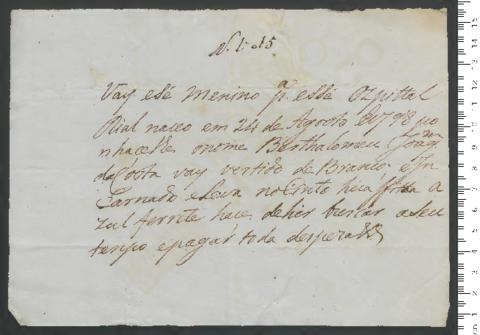 N. 1. 15
Vay esé menino pª. essé Ospittal
Rial naceo em 24 de Agosto de 1798 po
nhacelhe o nome Bertholomeu Joaqᵐ
da Costa vay vestido de Branco e In
Carnado e Leva no Cinto hua fitta a
zul ferrete hace de hir buscar a seu
tempo e pagar toda despeza